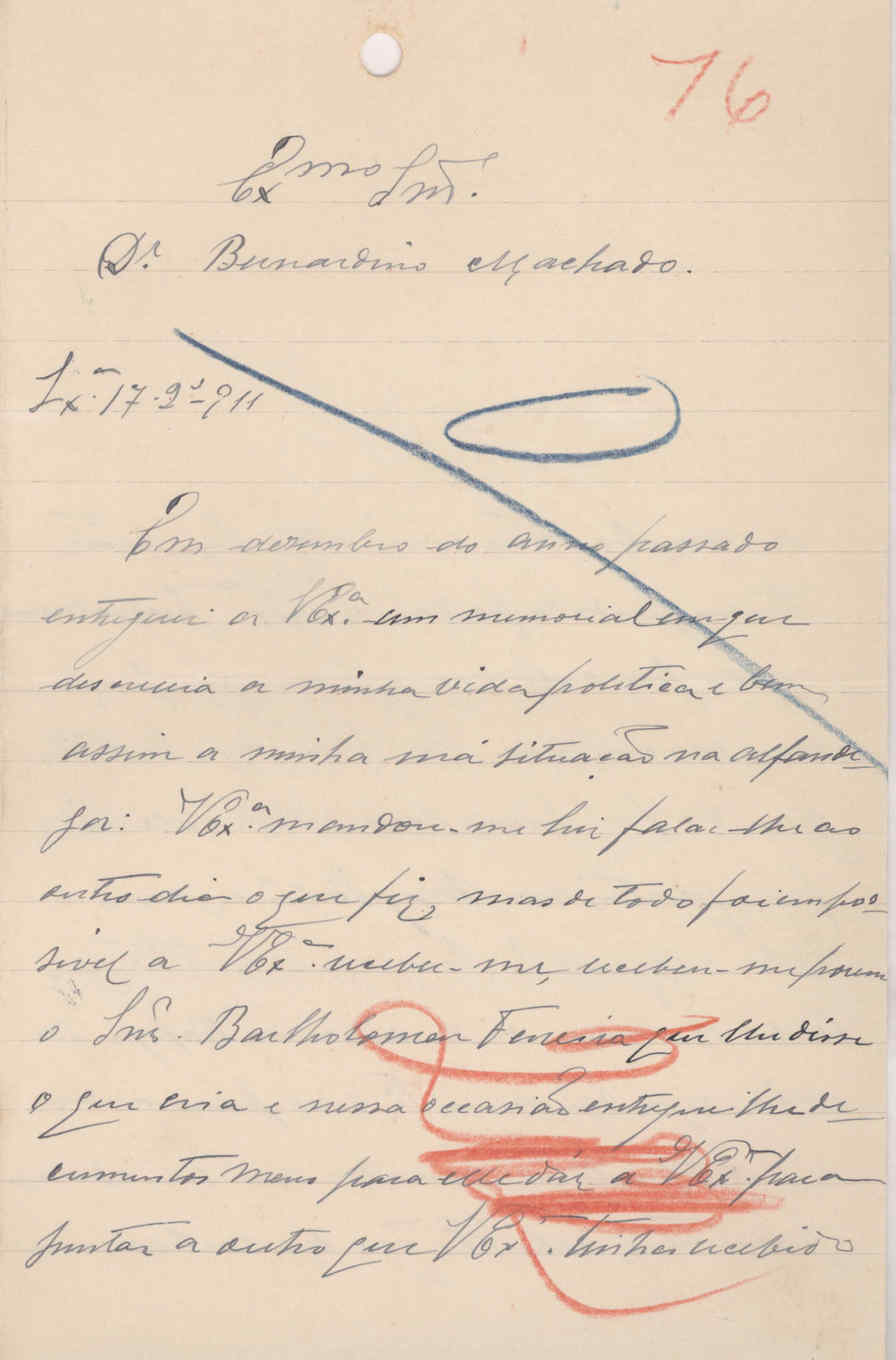 76
Exmo Snr.
Dr. Bernardino Machado.
Lxa. 17-2º-911
Em dezembro do anno passado
entreguei a VExa. um memorial em que
descrevia a minha vida politica e bem
assim a minha má situação na alfande-
ga: VExa. mandou-me hir falar-lhe ao
outro dia o que fiz, mas de todo foi empos-
sivel a VExa. receber-me, recebeu-me porem
o Snr. Bartholomeu Ferreira que lhe disse
o que era e nessa occasião entreguei lhe do-
cumentos meus para elle dár a VExa. para
juntar a outro que VExa. tinha recebido